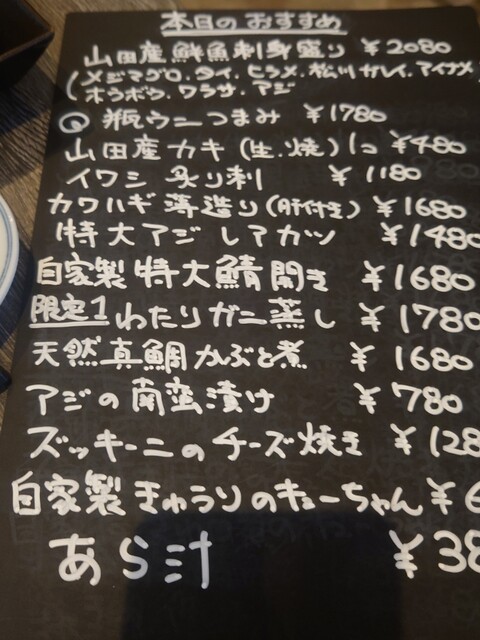 本日のおすすめ
山田産鮮魚刺身盛り ¥2080
(メジマグロ.タイ.ヒラメ.松川ガレイ.アイナメ
ホウボウ.ワラサ.アジ
瓶ウニつまみ ¥1780
山田産カキ(生.焼)1コ ¥480
イワシ炙り刺 ¥1180
カワハギ薄造り(肝付き) ¥1680
特大アジレアカツ ¥1480
自家製特大鯖開き ¥1680
限定1わたりガニ蒸し ¥1780
天然真鯛かぶと煮 ¥1680
アジの南蛮漬け ¥780
ズッキーニのチーズ焼き ¥128
自家製きゅうりのキューちゃん ¥6
あら汁 ¥38